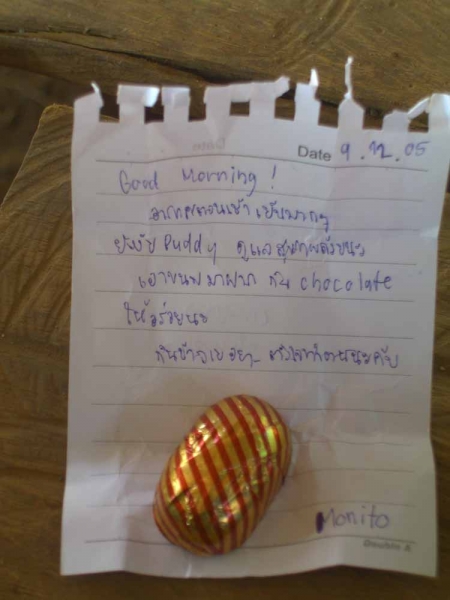 Date 9.12.05
Good Morning!
อากาศตอนเช้าเย็นมากๆ
Buddy ดูแลสุขภาพด้วยนะ
เอาขนมมาฝาก กิน chocolate
ให้อร่อยนะ
กินข้าวเยอะๆ
Monito
Double A